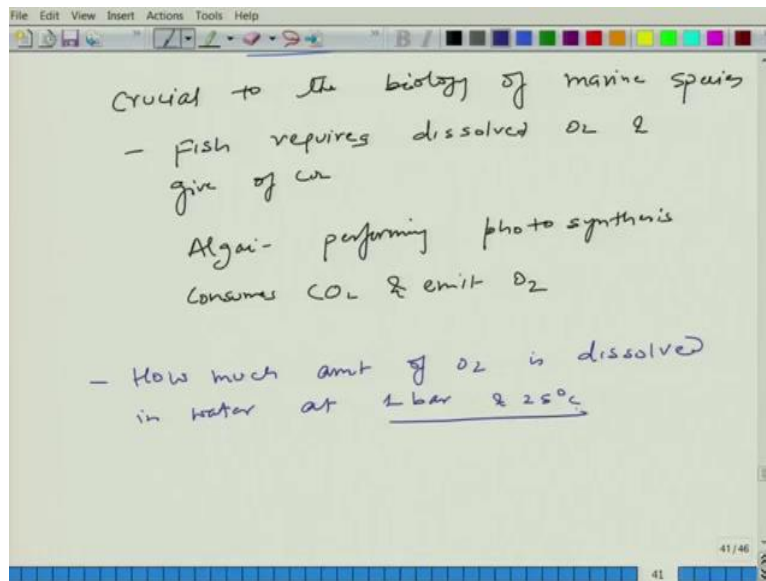 File Edit View Insert Actions Tools Help
Crucial to the biology of marine species
- Fish requires dissolved O2 &
give of CO2
Algai- performing photosynthesis
consumes CO2 & emit O2
- How much amt of O2 is dissolved
in water at 1 bar & 25°C
41/46
41